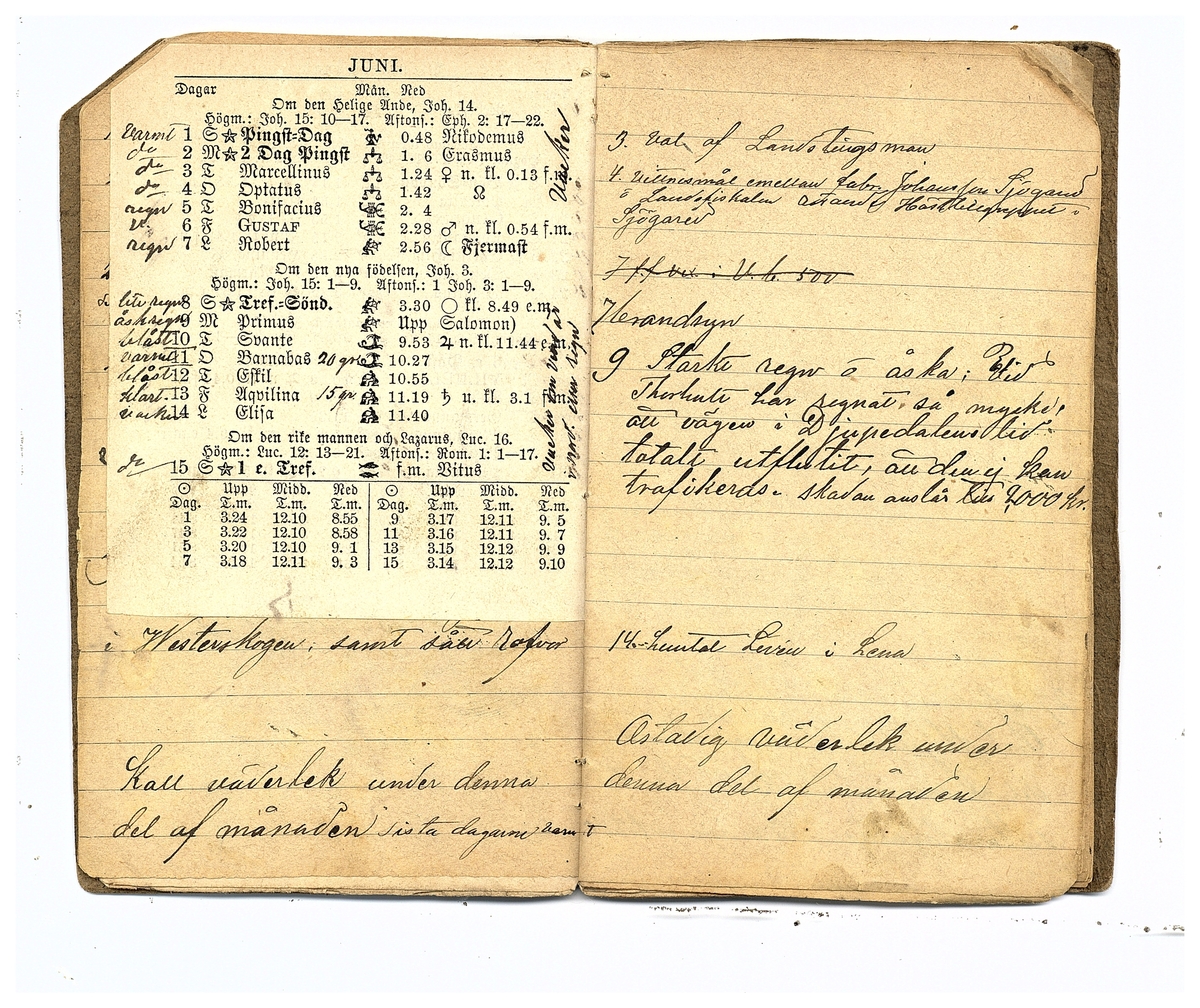 JUNI.
Dagar Mån. Ned
Om den Helige Ande, Joh. 14.
Högm.: Joh. 15: 10—17. Aftons.: Eph. 2: 17—22.
Varmt 1 S Pingst-Dag 0.48 Nikodemus
do 2 M 2 Dag Pingst 1. 6 Erasmus
do 3 T Marcellinus 1.24 ♀ n. kl. 0.13 f.m.
do 4 O Optatus 1.42 ☊
regn 5 T Bonifacius 2. 4
6 F GUSTAF 2.28 ♂ n. kl. 0.54 f.m.
regn 7 L Robert 2.56 ☾ Fjermast
Vacker
Om den nya födelsen, Joh. 3.
Högm.: Joh. 15: 1—9. Aftons.: 1 Joh. 3: 1—9.
lite regn 8 S Tref.-Sönd. 3.30 ○ kl. 8.49 e.m.
åskregn 9 M Primus Upp Salomon)
blåst 10 T Svante 9.53 ♃ n. kl. 11.44 e.m.
varmt 11 O Barnabas 20 gr 10.27
blåst 12 T Eskil 10.55
klart 13 F Aqvilina 15 gr 11.19 ♄ u. kl. 3.1
vacker 14 L Elisa 11.40
Om den rike mannen och Lazarus, Luc. 16.
Högm.: Luc. 12: 13—21. Aftons.: Rom. 1: 1—17.
do 15 S 1 e. Tref. f.m. Vitus
☉ Upp Midd. Ned ☉ Upp Midd. Ned
Dag. T.m. T.m. T.m. Dag. T.m. T.m. T.m.
1 3.24 12.10 8.55 9 3.17 12.11 9. 5
3 3.22 12.10 8.58 11 3.16 12.11 9. 7
5 3.20 12.10 9. 1 13 3.15 12.12 9. 9
7 3.18 12.11 9. 3 15 3.14 12.12 9.10
i Westerskogen; samt sått rofvor
Kall väderlek under denna
del af månaden sista dagarne varmt
3. Val af Landstingsman
4. Vittnesmål emellan fabr. Johansson Sjögared
o Landsfiskalen
Sjögared
7 i 500
7 brandsyn
9 Starkt regn o åska; Vid
Thorhult har regnat så mycket,
att vägen i Djupedalens lid
totalt utflutit, att den ej kan
trafikeras. skadan anslås till 2000 kr.
14. hemtat i Lena
Ostadig väderlek under
denna del af månaden